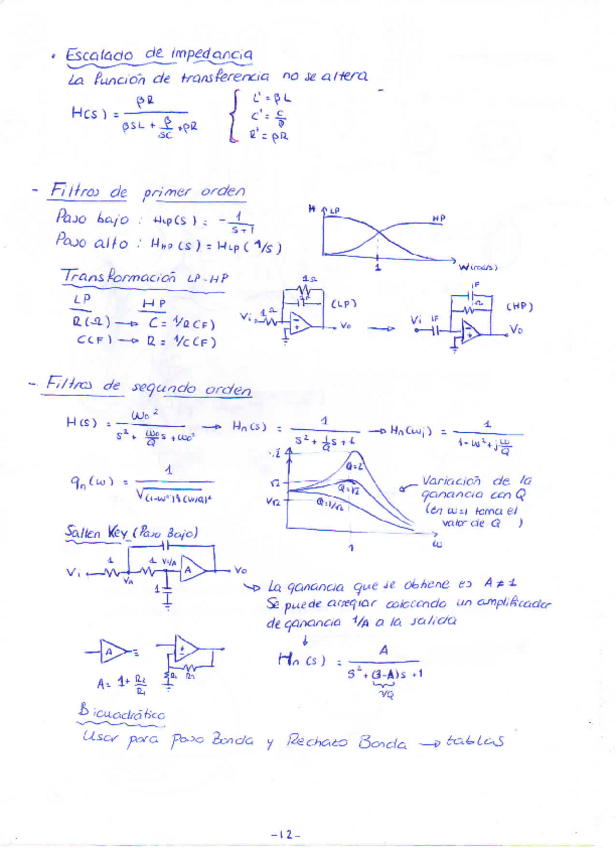 • Escalado de impedancia
La función de transferencia no se altera
H(s) = βR / (βSL + β/SC + βR)
{ L' = βL
C' = C/β
R' = βR
- Filtros de primer orden
Paso bajo : HLP(s) = - 1/(s+1)
Paso alto : HHP(s) = HLP(1/s)
H LP HP
1 W(rad/s)
Transformación LP-HP
LP HP
R(Ω) → C = 1/R (F)
C(F) → R = 1/C (F)
Vi 1Ω 1Ω 1F (LP) Vo →
Vi 1F 1F 1Ω (HP) Vo
- Filtros de segundo orden
H(s) = ω0² / (s² + ω0/Q s + ω0²) → Hn(s) = 1 / (s² + 1/Q s + 1) → Hn(ωj) = 1 / (1-ω² + j ω/Q)
qn(ω) = 1 / √((1-ω²)²+(ω/Q)²)
2 √2 1/√2
Q=2
Q=√2
Q=1/√2
1 ω
Variación de la
ganancia con Q
(en ω=1 toma el
valor de Q )
Sallen Key (Paso Bajo)
Vi 1 VA 1 Vo/A A Vo
1
→ La ganancia que se obtiene es A ≠ 1
Se puede arreglar colocando un amplificador
de ganancia 1/A a la salida
↓
Hn(s) = A / (s² + (3-A)s + 1)
1/Q
A =
R1 R2
A = 1 + R2/R1
Bicuadrático
Usar para Paso Banda y Rechazo Banda → tablas
-12-